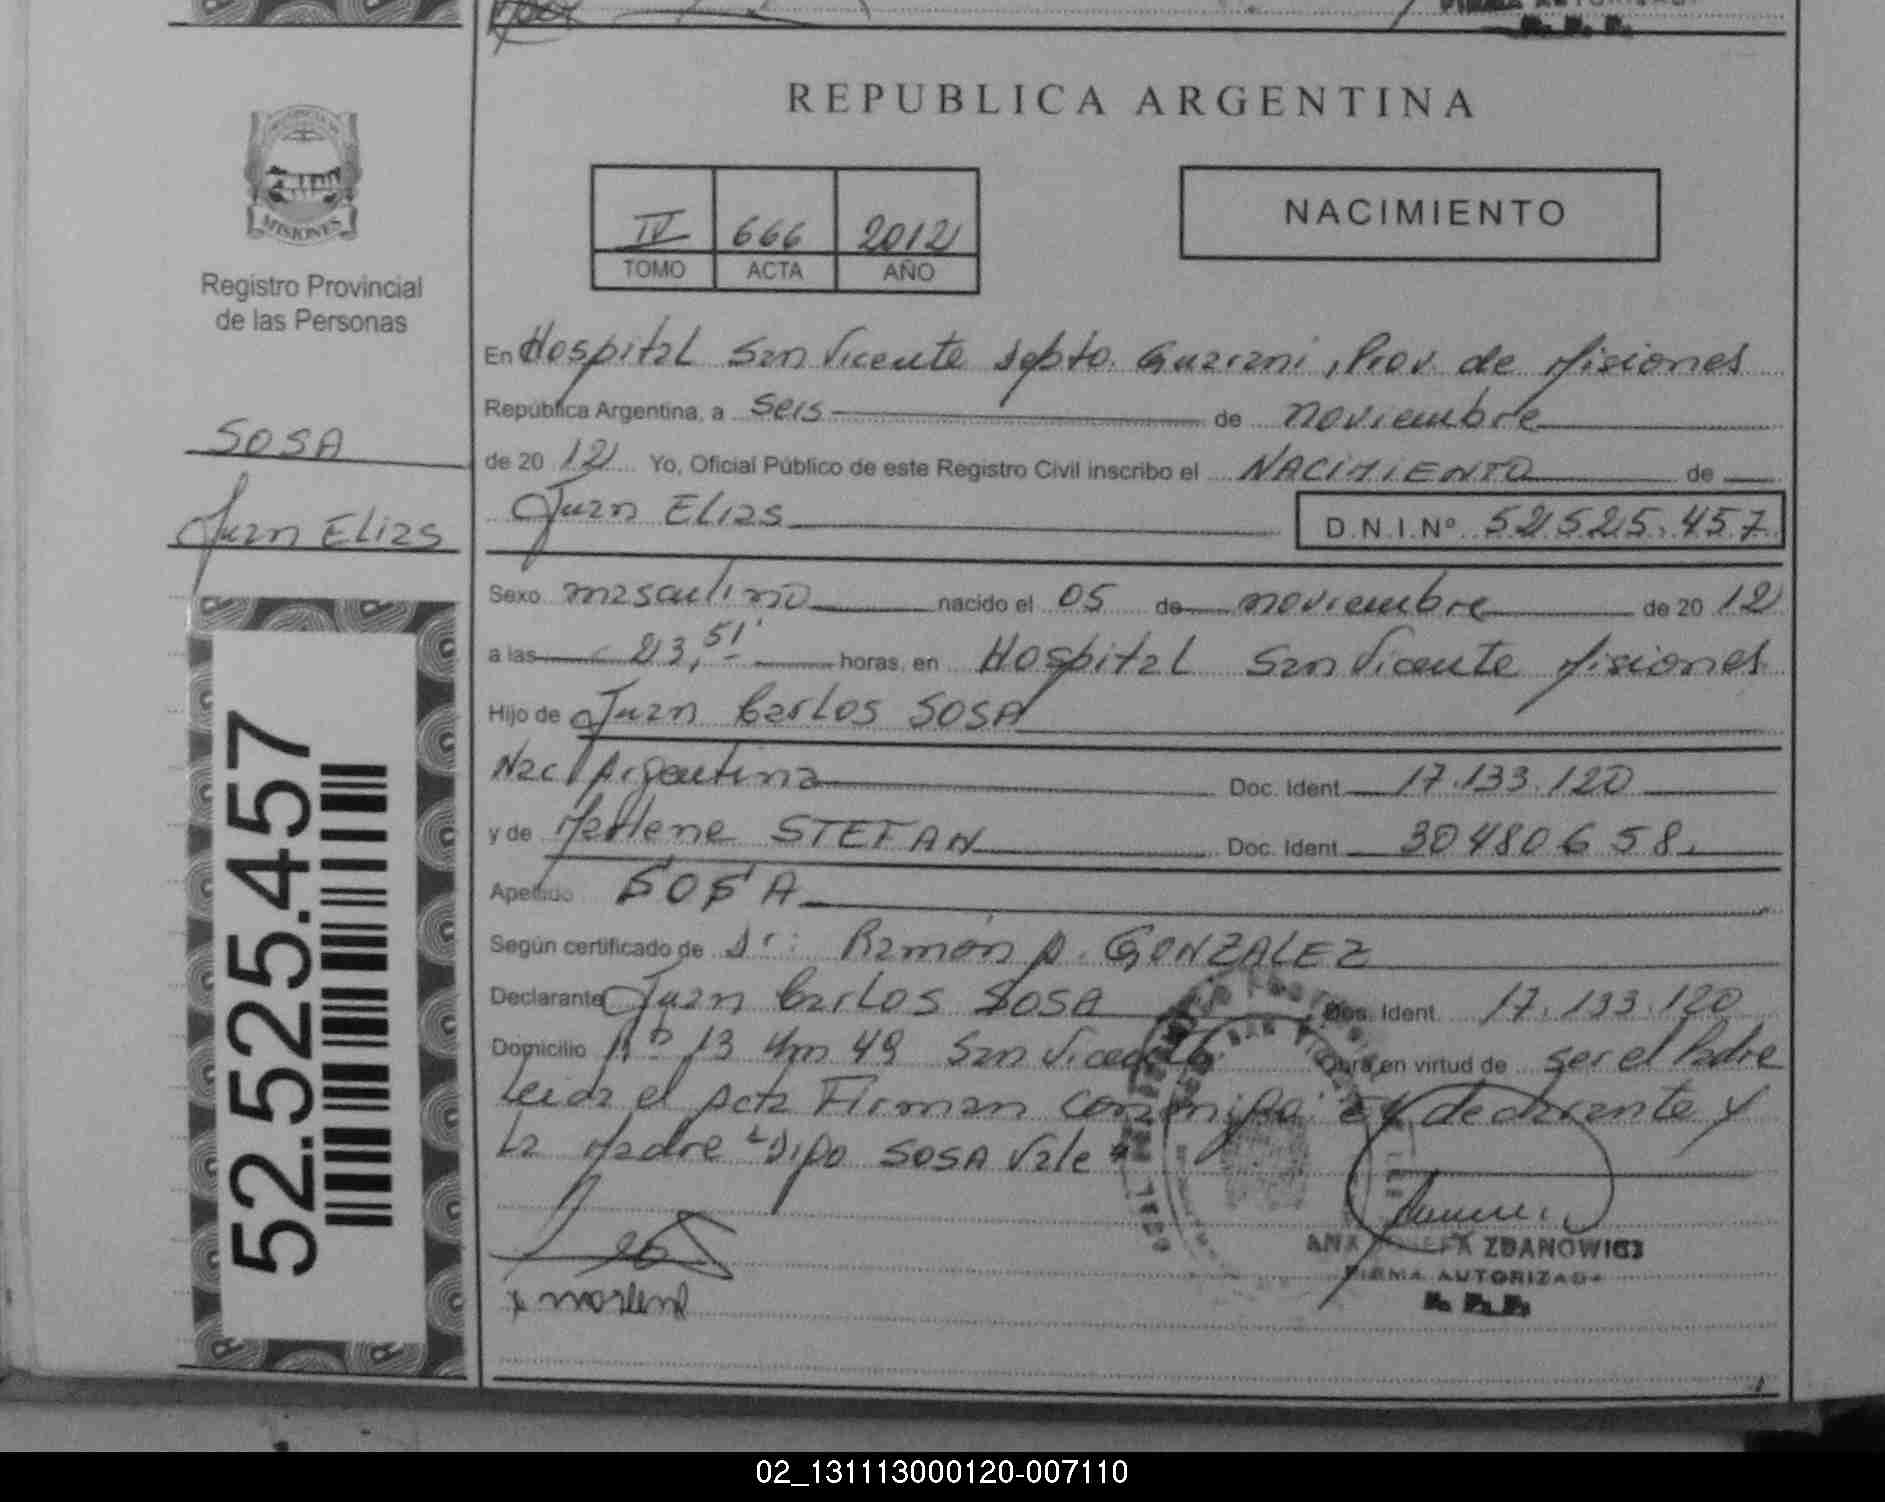 REPUBLICA ARGENTINA
MISIONES
Registro Provincial
de las Personas
SOSA
Juan Elias
52.525.457
IV 666 2012
TOMO ACTA AÑO
NACIMIENTO
En Hospital San Vicente Depto. Guarani, Prov. de Misiones
República Argentina, a seis de noviembre
de 20 12 Yo, Oficial Público de este Registro Civil inscribo el NACIMIENTO de
Juan Elias D.N.I.Nº 52.525.457
Sexo masculino nacido el 05 de noviembre de 20 12
a las 23,51' horas, en Hospital San Vicente Misiones
Hijo de Juan Carlos SOSA
Nac. Argentina Doc. Ident 17.133.120
y de Marlene STEFAN Doc. Ident 30480658.
Apellido SOSA
Según certificado de Dr: Ramón A. GONZALEZ
Declarante Juan Carlos SOSA Doc. Ident. 17.133.120
Domicilio 13 Km 49 San Vicente Obra en virtud de ser el Padre
Leida el Acta Firman conmigo: El declarante y
La Madre "Dipo SOSA Vale"
ANA JOSEFA ZDANOWICZ
FIRMA AUTORIZADA
R. P. P.
x marlene
02_131113000120-007110